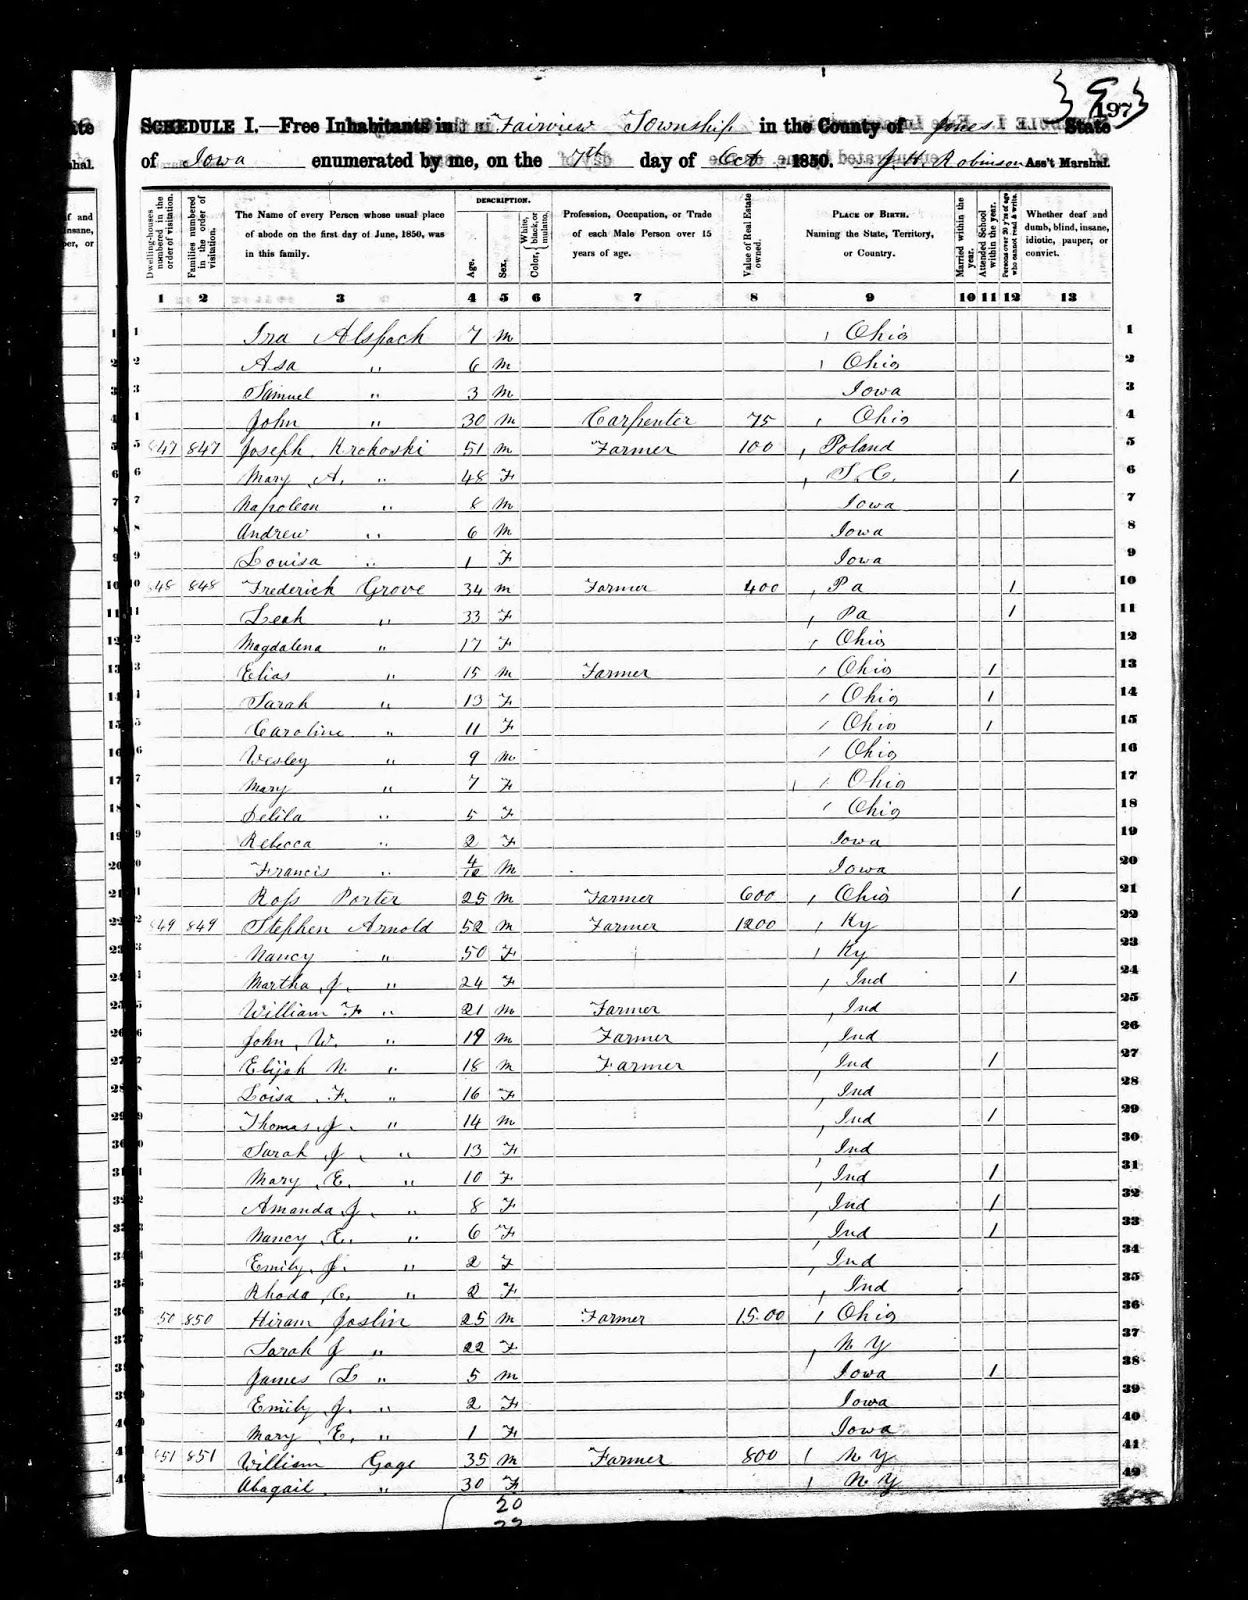 197
SCHEDULE I.—Free Inhabitants in Fairview Township in the County of Jones State
of Iowa enumerated by me, on the 7th day of Oct 1850. J. H. Robinson Ass't Marshal.
Dwelling-houses numbered in the order of visitation.
Families numbered in the order of visitation.
The Name of every Person whose usual place of abode on the first day of June, 1850, was in this family.
DESCRIPTION.
Age.
Sex.
Color, White, black, or mulatto.
Profession, Occupation, or Trade of each Male Person over 15 years of age.
Value of Real Estate owned.
PLACE OF BIRTH. Naming the State, Territory, or Country.
Married within the year.
Attended School within the year.
Persons over 20 y'rs of age who cannot read & write.
Whether deaf and dumb, blind, insane, idiotic, pauper, or convict.
1 2 3 4 5 6 7 8 9 10 11 12 13
1 Ira Alspach 7 M Ohio 1
2 Asa " 6 M Ohio 2
3 Samuel " 3 M Iowa 3
John " 30 M Carpenter 75 Ohio 4
5 847 847 Joseph Krokoski 51 M Farmer 100 Poland 5
6 Mary A. " 48 F S.C. 1 6
7 Napolean " 8 M Iowa 7
8 Andrew " 6 M Iowa 8
9 Louisa " 1 F Iowa 9
10 848 848 Frederick Grove 34 M Farmer 400 Pa 1 10
11 Leah " 33 F Pa 1 11
12 Magdalena " 17 F Ohio 12
13 Elias " 15 M Farmer Ohio 1 13
14 Sarah " 13 F Ohio 1 14
15 Caroline " 11 F Ohio 1 15
16 Wesley " 9 M Ohio 16
17 Mary " 7 F Ohio 17
18 Delila " 5 F Ohio 18
19 Rebecca " 2 F Iowa 19
20 Francis " 4/12 M Iowa 20
21 Ross Porter 25 M Farmer 600 Ohio 1 21
22 849 849 Stephen Arnold 52 M Farmer 1200 Ky 22
23 Nancy " 50 F Ky 23
24 Martha J. " 24 F Ind 1 24
25 William F " 21 M Farmer Ind 25
26 John W. " 19 M Farmer Ind 26
27 Elijah N. " 18 M Farmer Ind 1 27
28 Loisa F. " 16 F Ind 28
29 Thomas J. " 14 M Ind 1 29
30 Sarah J. " 13 F Ind 30
31 Mary E. " 10 F Ind 1 31
32 Amanda J. " 8 F Ind 1 32
33 Nancy E. " 6 F Ind 1 33
34 Emily J. " 2 F Ind 34
35 Rhoda C. " 2 F Ind 35
36 850 850 Hiram Joslin 25 M Farmer 15.00 Ohio 36
37 Sarah J " 22 F N Y 37
38 James L " 5 M Iowa 1 38
39 Emily J. " 2 F Iowa 39
40 Mary E. " 1 F Iowa 40
41 851 851 William Gage 35 M Farmer 800 N Y 41
Abagail " 30 F N Y 42
20